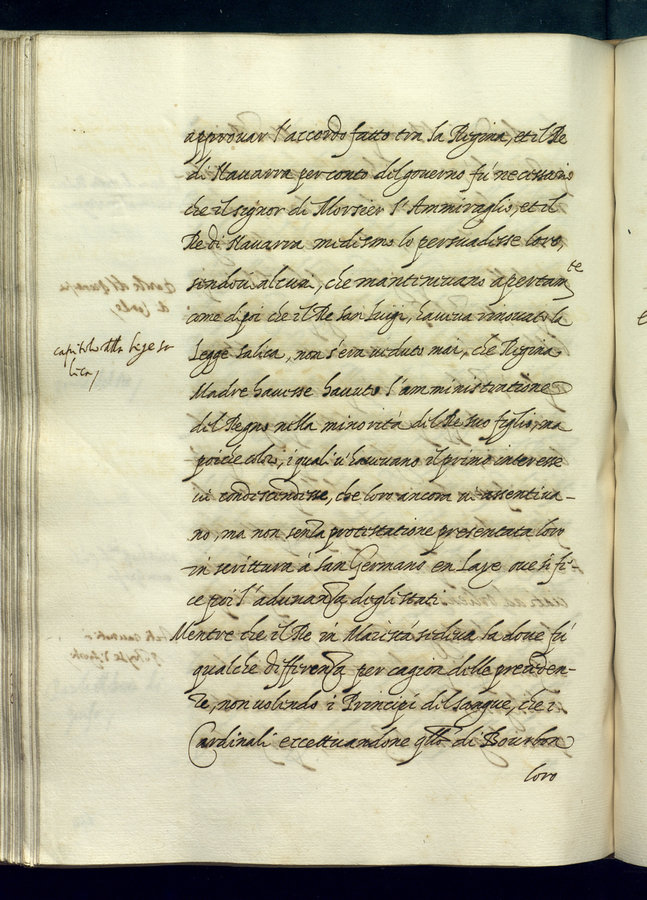 approuar l'accordo fatto tra la Regina, et il Re
di Nauarra per conto del gouerno fu necessario
che il signor di Morsier l'Ammiraglio, et il
Re di Nauarra medesimo lo persuadesse loro,
sendoui alcuni, che manteneuano apertam.te
come dipoi che il Re san Luigi, haueua rinouato la
capitolo della legge sa
lica,
Legge salica, non s'era ueduto mai, che Regina
Madre hauesse hauuto l'amministratione
del Regno nella minorità del Re suo figlio, ma
poiche coloro, i quali u'haueuano il primo interesse
ui condiscendeße, che loro ancora u'assentiua-
no, ma non senza protestatione presentata loro
in scrittura à san Germano en Laye oue si fe-
ce poi l'adunanza degli stati.
Mentre che il Re in Maiestà sedeua la doue fu
qualche differenza per cagion delle preceden-
ze, non uolendo i Principi del sangue, che i
Cardinali eccettuandone q.llo di Bourbone
loro